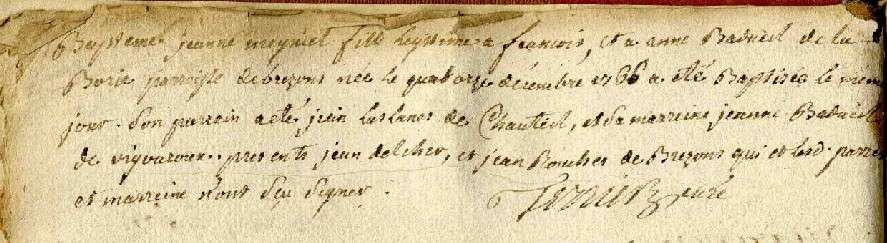 Bapteme jeanne meyniel fille legitime a francois, et a anne Badueil de la
Borie paroisse de brezons née le quatorze decembre 1766 a été Baptisée le meme
jour. Son parrain a été jean de Chauteil, et sa marreine jeanne Badueil
de vigouroux.. presents jean delcher, et jean Boucher de Brezons qui et led. parrein
et marreine n'ont sçu signer. curé